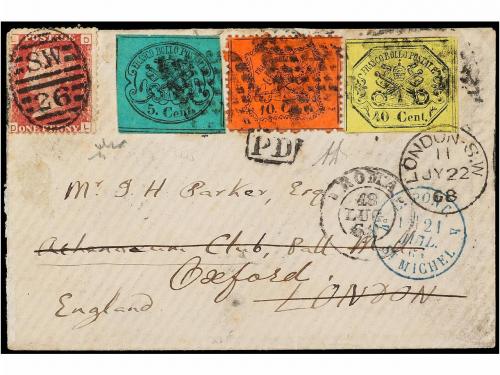 S.W.
26
ONE PENNY
D L
FRANCO BOLLO POSTALE
5 Cent.
FRANCO BOLLO POSTALE
10 Cent
FRANCO BOLLO POSTALE
40 Cent.
PD
ROMA
LUG
LONDON-S.W
11
JY22
68
21
MICHEL
Mr J H Parker, Esq
Athenaeum Club, Pall M
Oxford.
LONDON
England